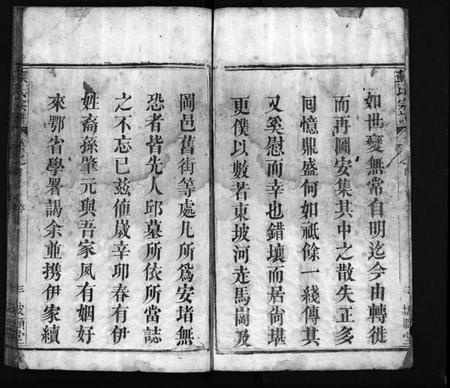 如世變無常自明迄今由轉徙
而再圖安集其中之散失正多
囘憶鼎盛何如祇餘一綫傳其
又奚慰而幸也錯壤而居尙堪
更僕以數若東坡河走馬崗及
岡邑舊街等處凡所爲安堵無
恐者皆先人邱墓所依所當誌
之不忘已茲値歲辛卯春有伊
姓裔孫肇元與吾家夙有姻好
來鄂省學署謁余並携伊家續